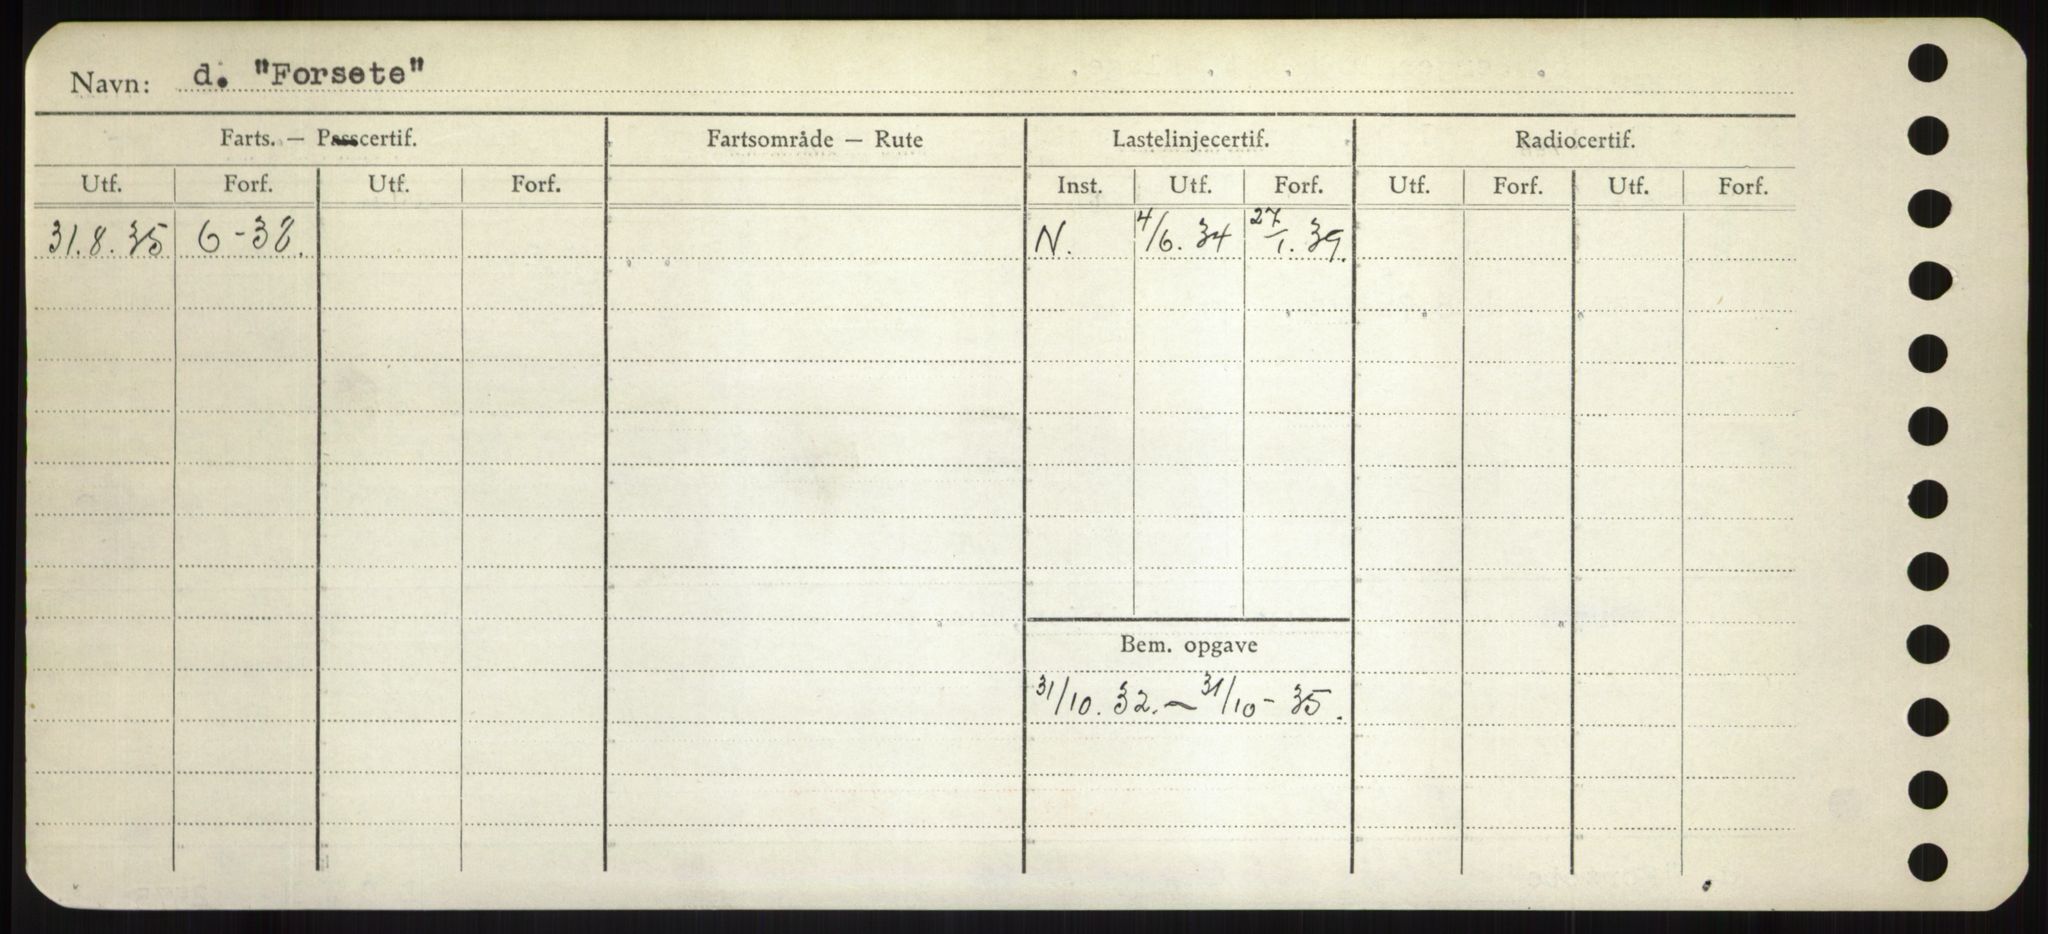 Navn: d. "Forsete"
Farts. — Passcertif. Fartsområde — Rute Lastelinjecertif. Radiocertif.
Utf. Forf. Utf. Forf. Inst. Utf. Forf. Utf. Forf. Utf. Forf.
31.8.35 6-38. N. 4/6. 34 27/1. 39.
Bem. opgave
31/10. 32. ~ 31/10 - 35.